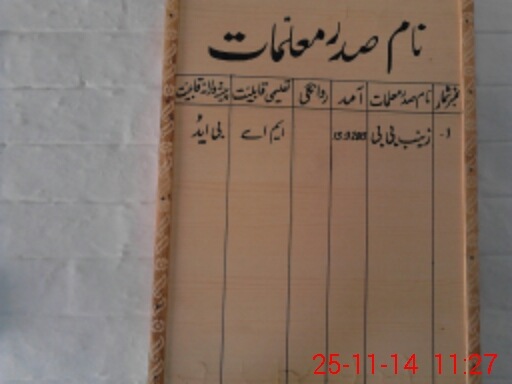 نام صدر معلمات
نمبر شمار نام صدر معلمات آمد روانگی تعلیمی قابلیت پیشہ ورانہ قابلیت
1- زینب بی بی 13.9.2013 ایم اے بی ایڈ
25-11-14 11:27